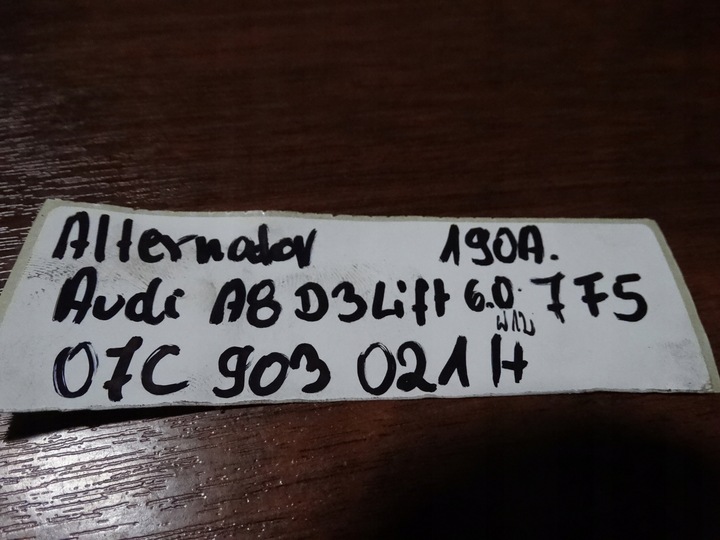 Alternator 190A.
Audi A8 D3 Lift 6.0 W12 775
07C 903 021 H